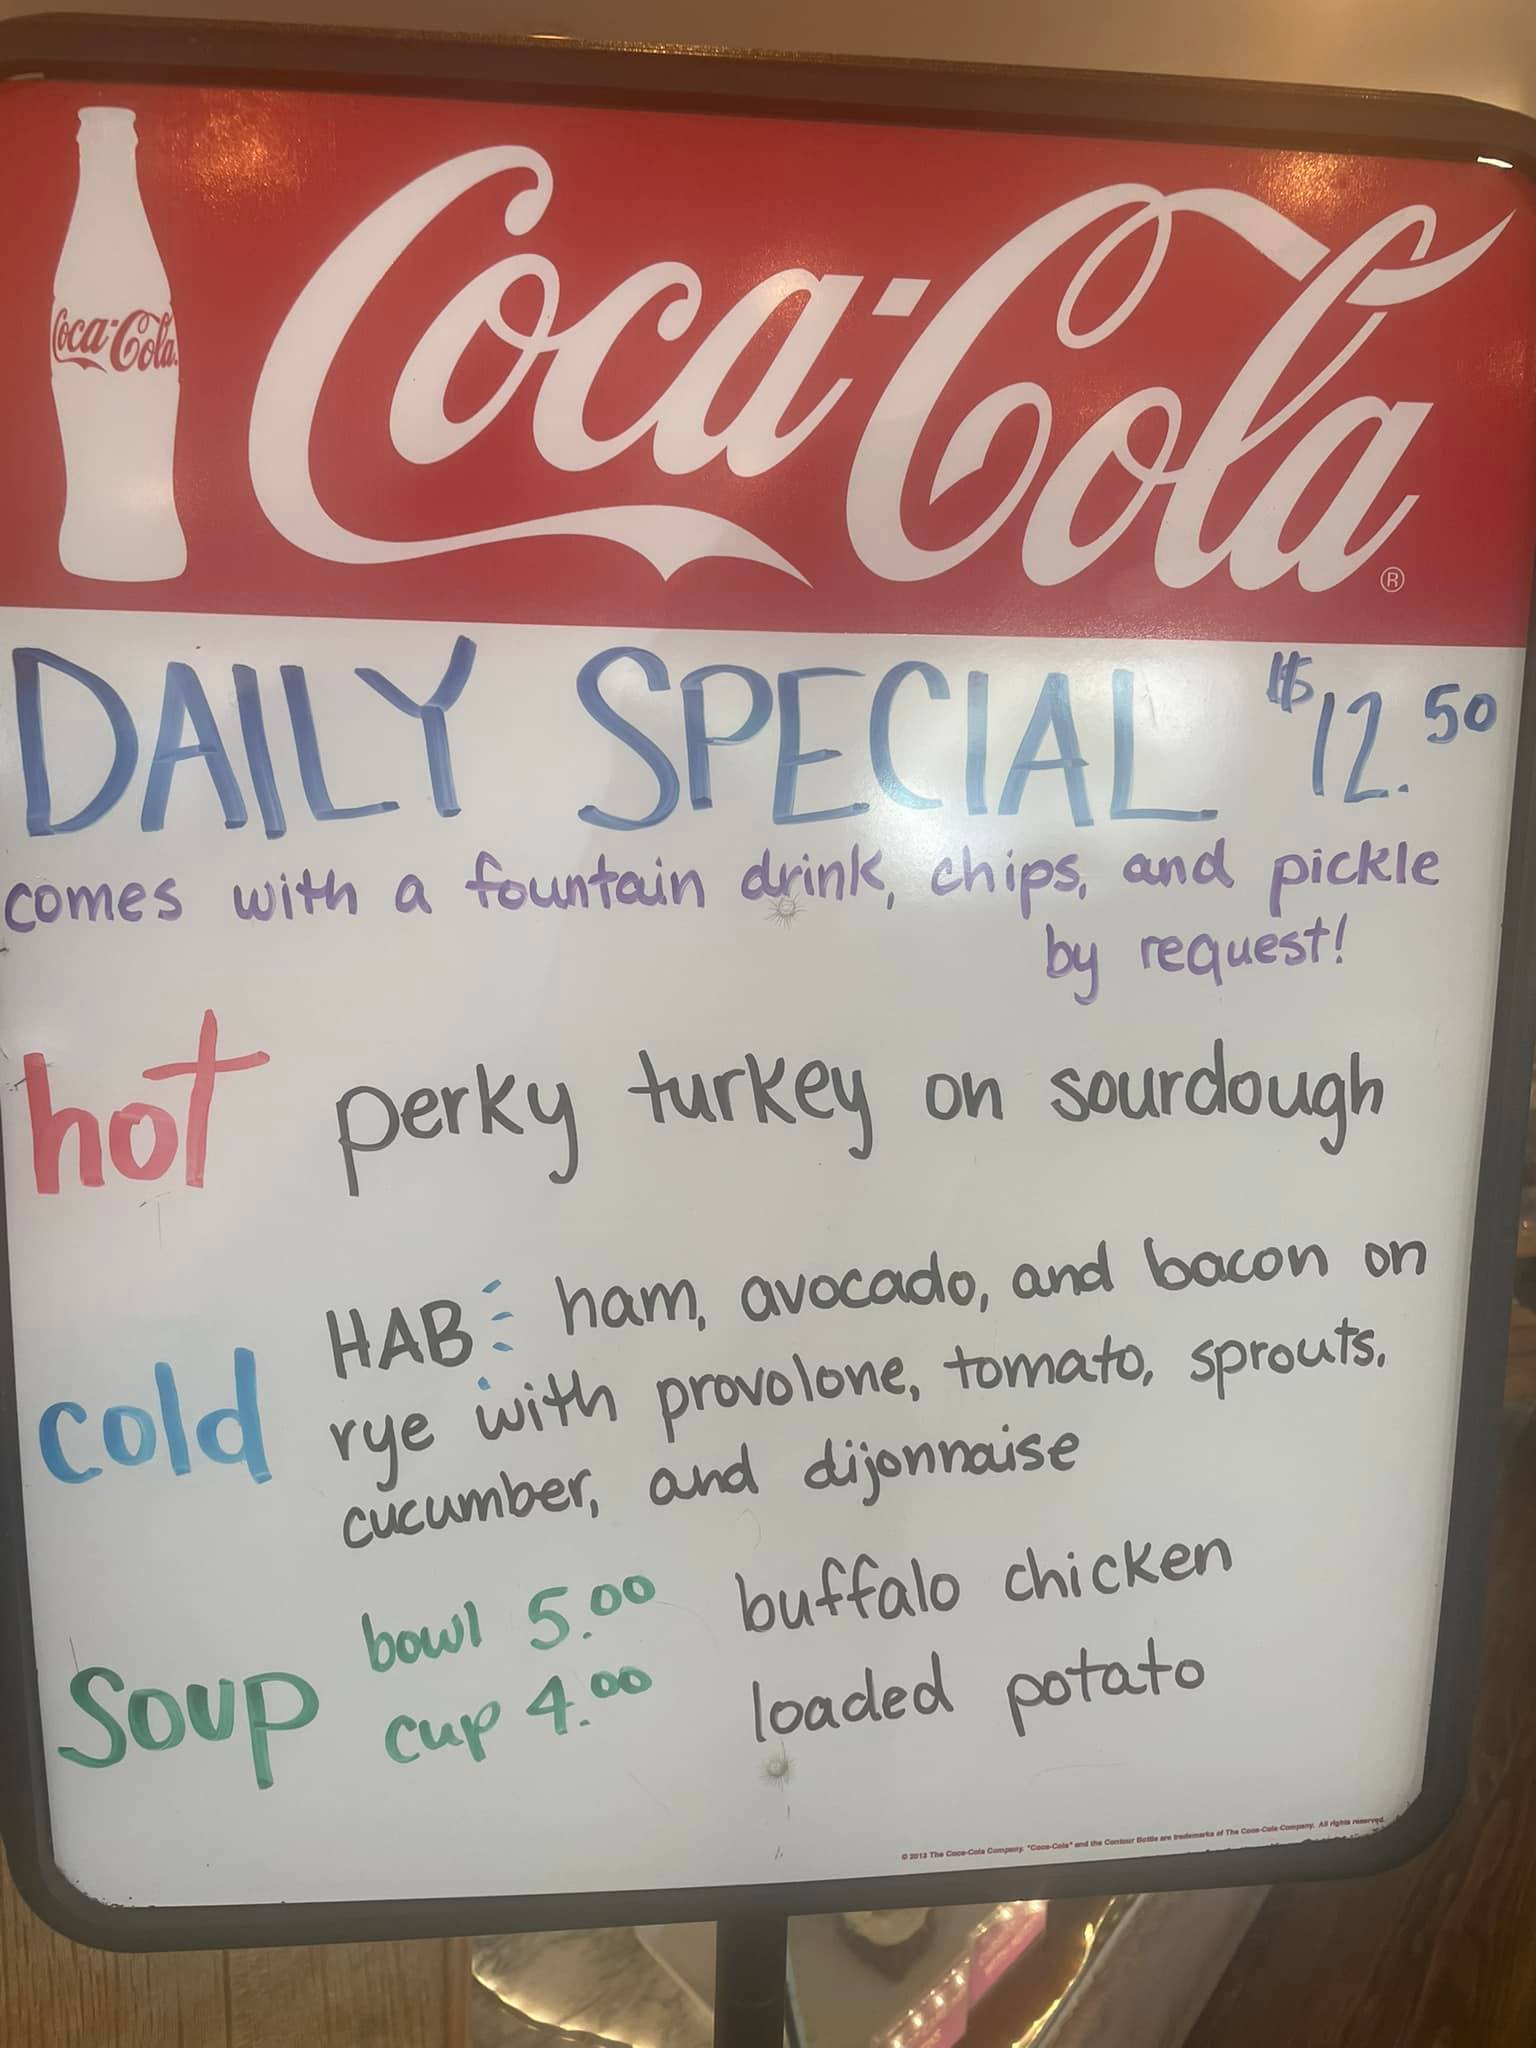 Coca-Cola
Coca-Cola®
DAILY SPECIAL $12.50
comes with a fountain drink, chips, and pickle
by request!
hot perky turkey on sourdough
cold HAB: ham, avocado, and bacon on
rye with provolone, tomato, sprouts,
cucumber, and dijonnaise
soup bowl 5.00 buffalo chicken
cup 4.00 loaded potato
© 2013 The Coca-Cola Company. "Coca-Cola" and the Contour Bottle are trademarks of The Coca-Cola Company. All rights reserved.